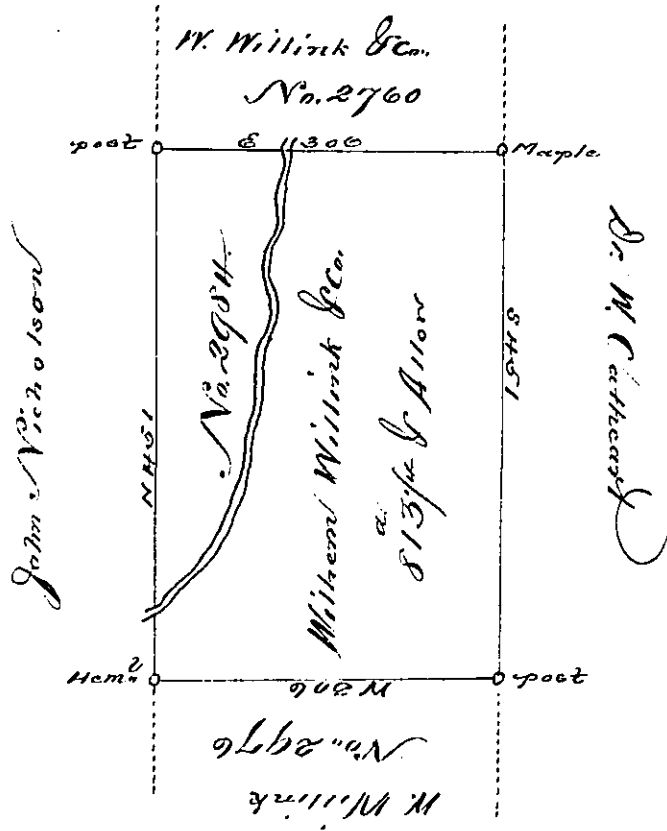 W. Willink & Co.
No. 2760
post
E 306
Maple
John Nicholson
N 451
No. 2984
Wilhem Willink & Co.
a.
813 1/4 & Allow
S 451
Dr. W. Cathcart
Hemk
W 306
post
No. 2976
W. Willink